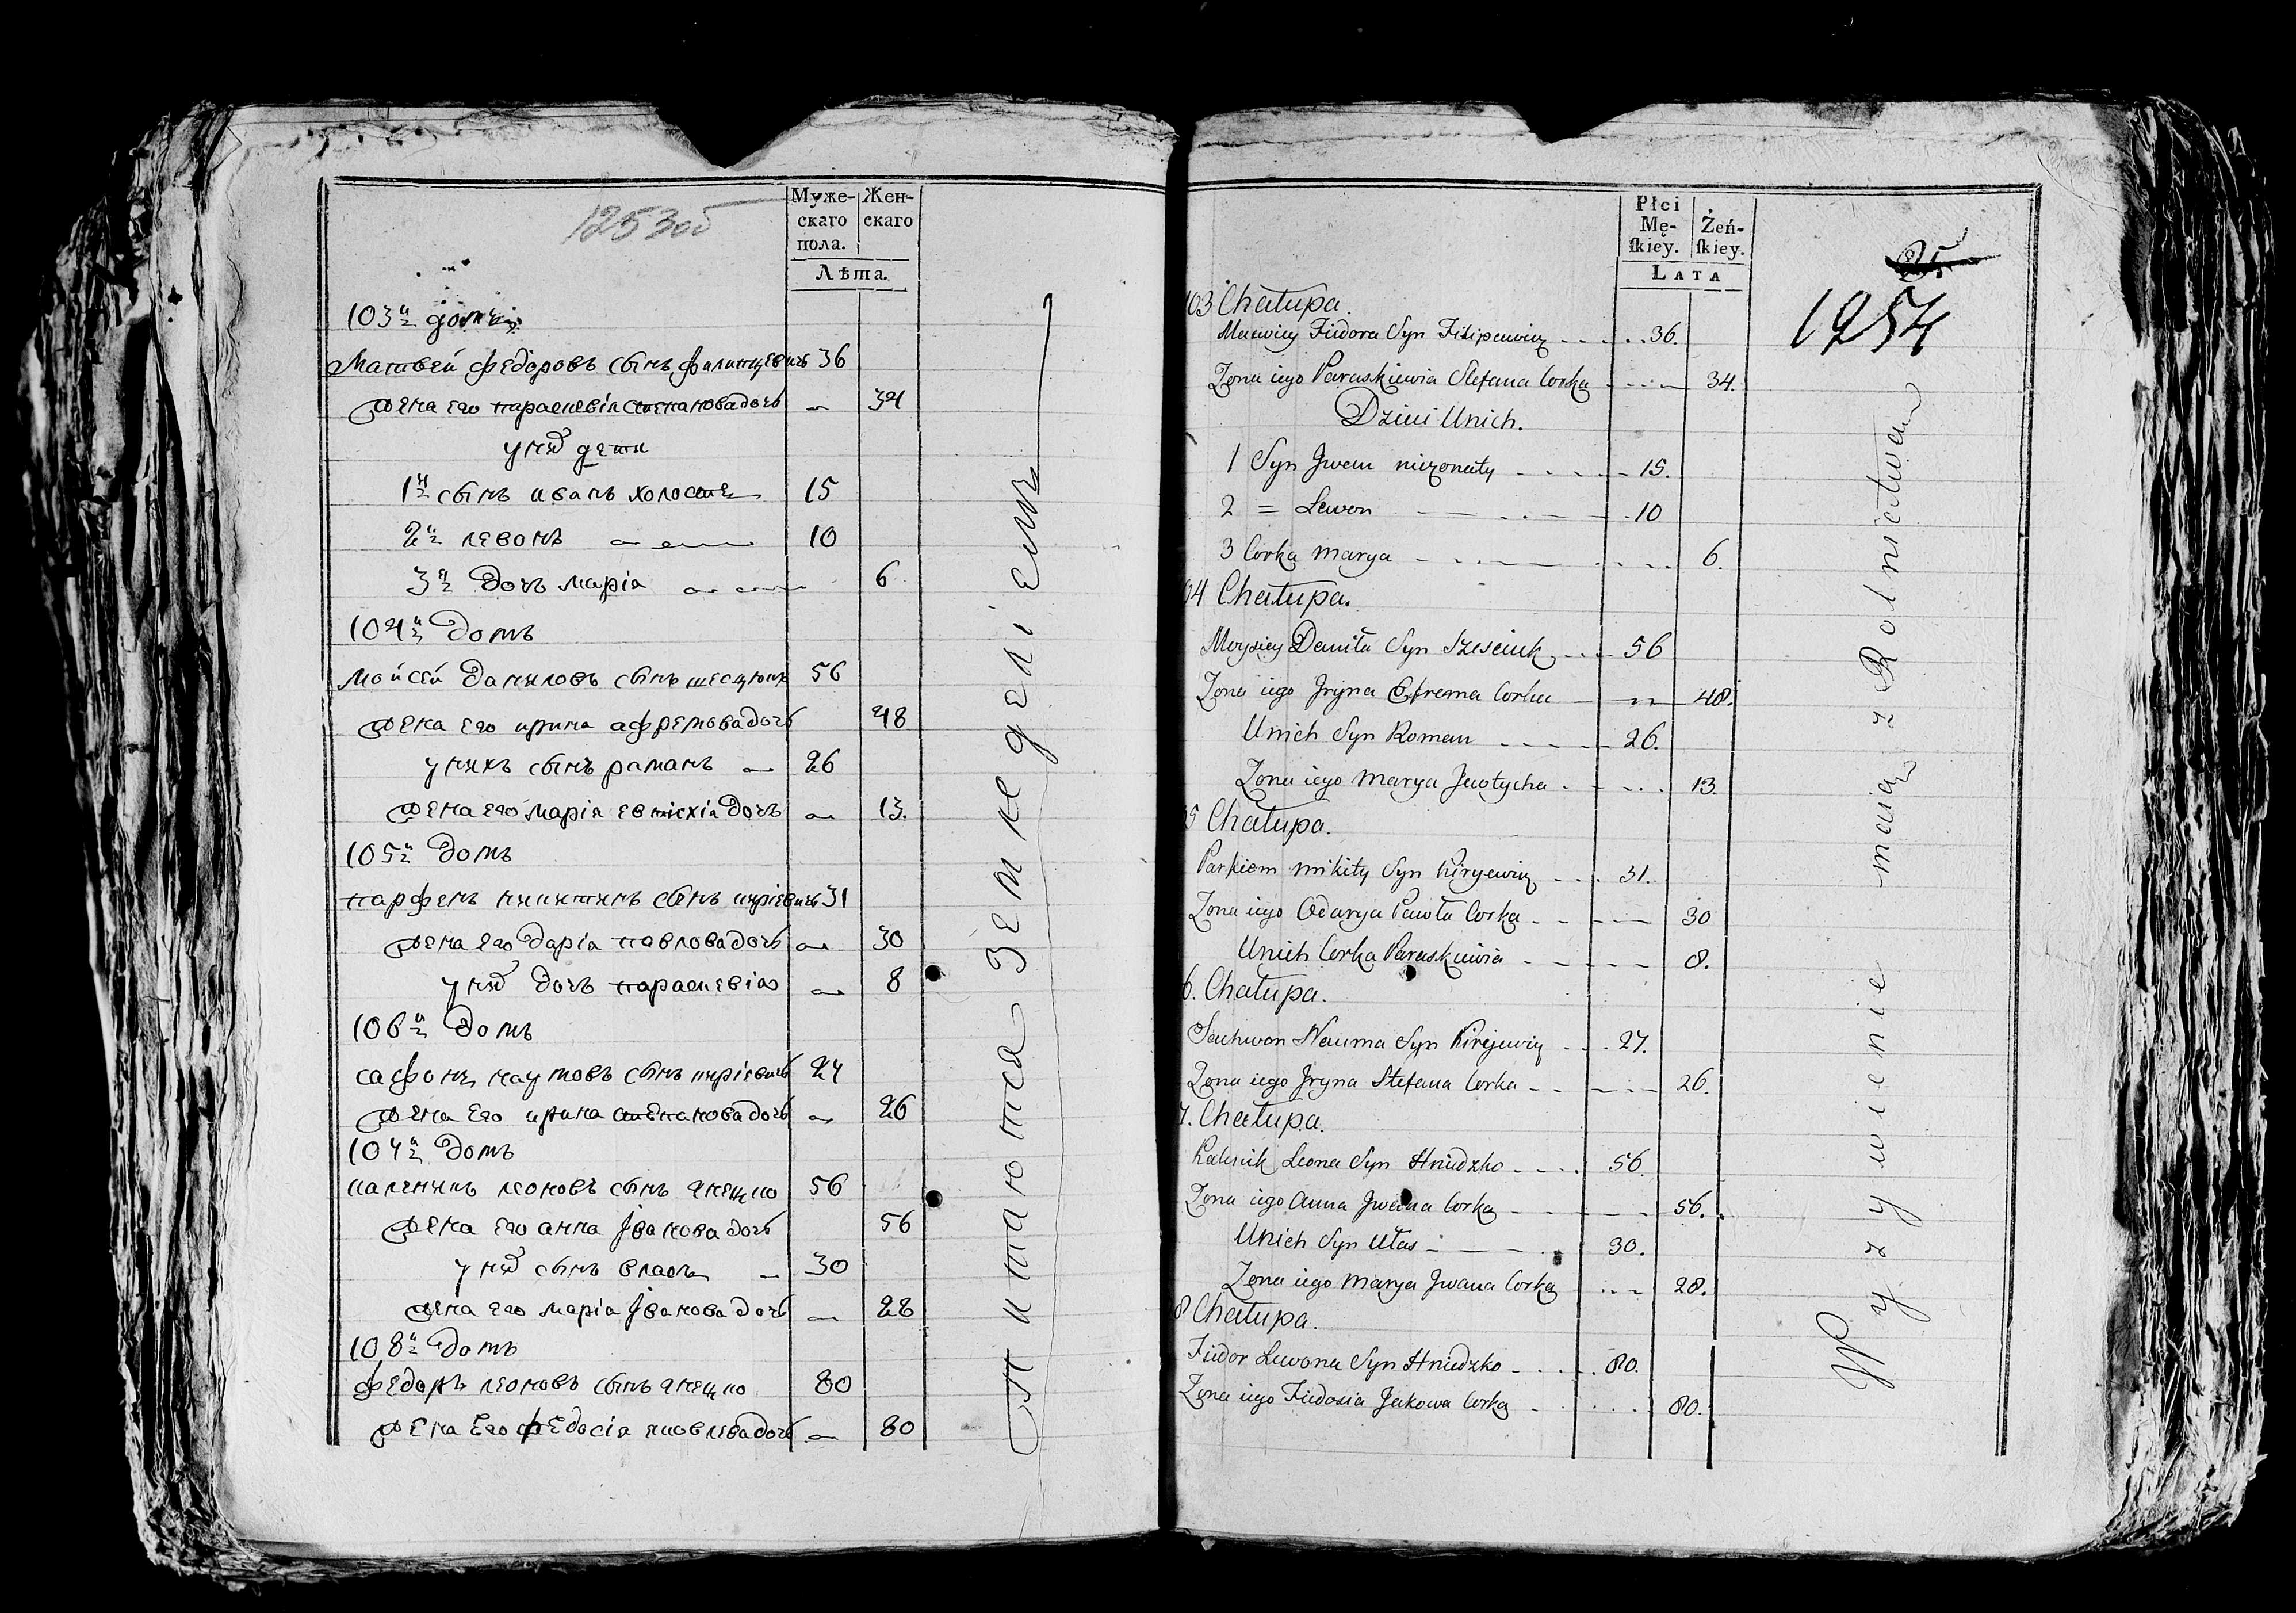 1253об
Муже-
скаго
пола.
Жен-
скаго
Лѣта.
103й домъ
Матвей федоровъ сынъ филипцевичъ 36
Жена его параскевіа степановадочь 34
у ныхъ дети
1й сынъ иванъ холостъ 15
2й левонъ 10
3я дочь маріа 6
104й домъ
мойсей даниловъ сынъ шесцюкъ 56
жена его ирина афремовадочь 48
у нихъ сынъ раманъ 26
жена его маріа евтисхіа дочъ 13.
105й домъ
парфенъ никитинъ сынъ киріевичъ 31
жена его даріа павловадочь 30
у ныхъ дочъ параскевіа 8
106й домъ
сафонъ наумовъ сынъ киріевичъ 27
жена его ирина степановадочь 26
107й домъ
каленикъ леоновъ сынъ гнецко 56
жена его анна Івановадочь 56
у ныхъ сынъ власъ 30
жена его маріа Івановадочь 28
108й домъ
федоръ леоновъ сынъ гнецко 80
жена его федосіа яковлевадочь 80
питаютса земледеліемъ
Płci
Mę-
ſkiey.
Żeń-
ſkiey.
LATA
1254
103 Chałupa.
Matwiey Fiudora Syn Filipcewicz 36.
Zona iego Paraskiewia Stefana Corka 34.
Dzieci Unich.
1 Syn Jwan niezonaty 15.
2 = Lewon 10
3 Corka Marya 6.
04 Chałupa.
Moysiey Daniła Syn Szesciuk 56
Zona iego Jryna Ofrema Corka 48.
Unich Syn Roman 26.
Zona iego Marya Jewtycha 13.
5 Chałupa.
Parfiem Mikity Syn Kiryewicz 31.
Zona iego Odarya Pawła Corka 30
Unich Corka Paraskiewia 8.
6. Chałupa.
Sachwon Nauma Syn Kirejewicz 27.
Zona iego Jryna Stefana Corka 26.
7. Chałupa.
Kalenik Leona Syn Hniedzko 56.
Zona iego Anna Jwana Corka 56.
Unich Syn Ułas 30.
Zona iego Marya Jwana Corka 28.
8 Chałupa.
Fiedor Lewona Syn Hniedzko 80.
Zona iego Fiedosia Jakowa Corka 80.
Wyzywienie maią z Rolnictwa